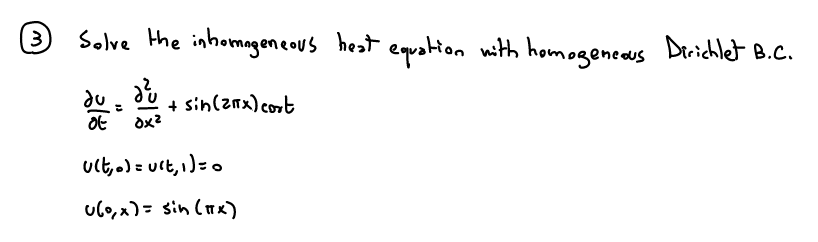 ③ Solve the inhomogeneous heat equation with homogeneous Dirichlet B.C.
∂u/∂t = ∂²u/∂x² + sin(2πx)cost
u(t,0) = u(t,1) = 0
u(0,x) = sin(πx)